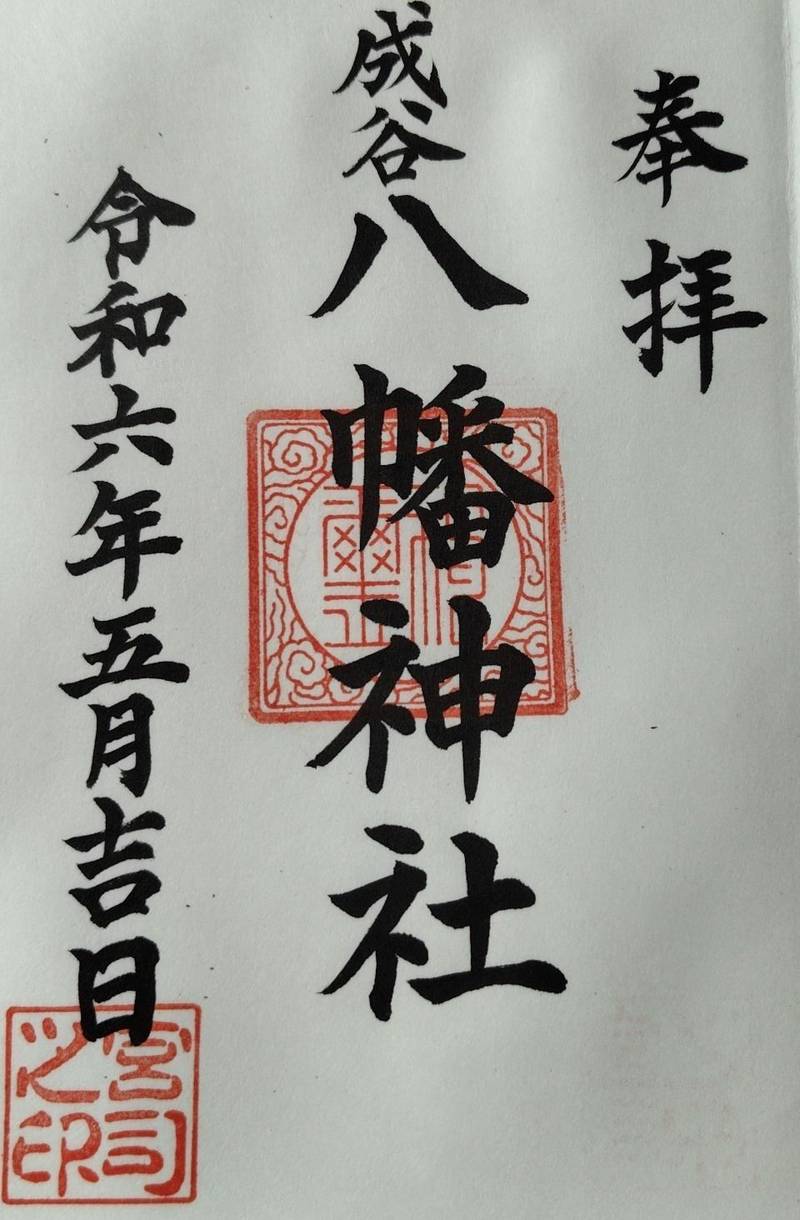 奉拝
成谷八幡神社
令和六年五月吉日
宮司
之印